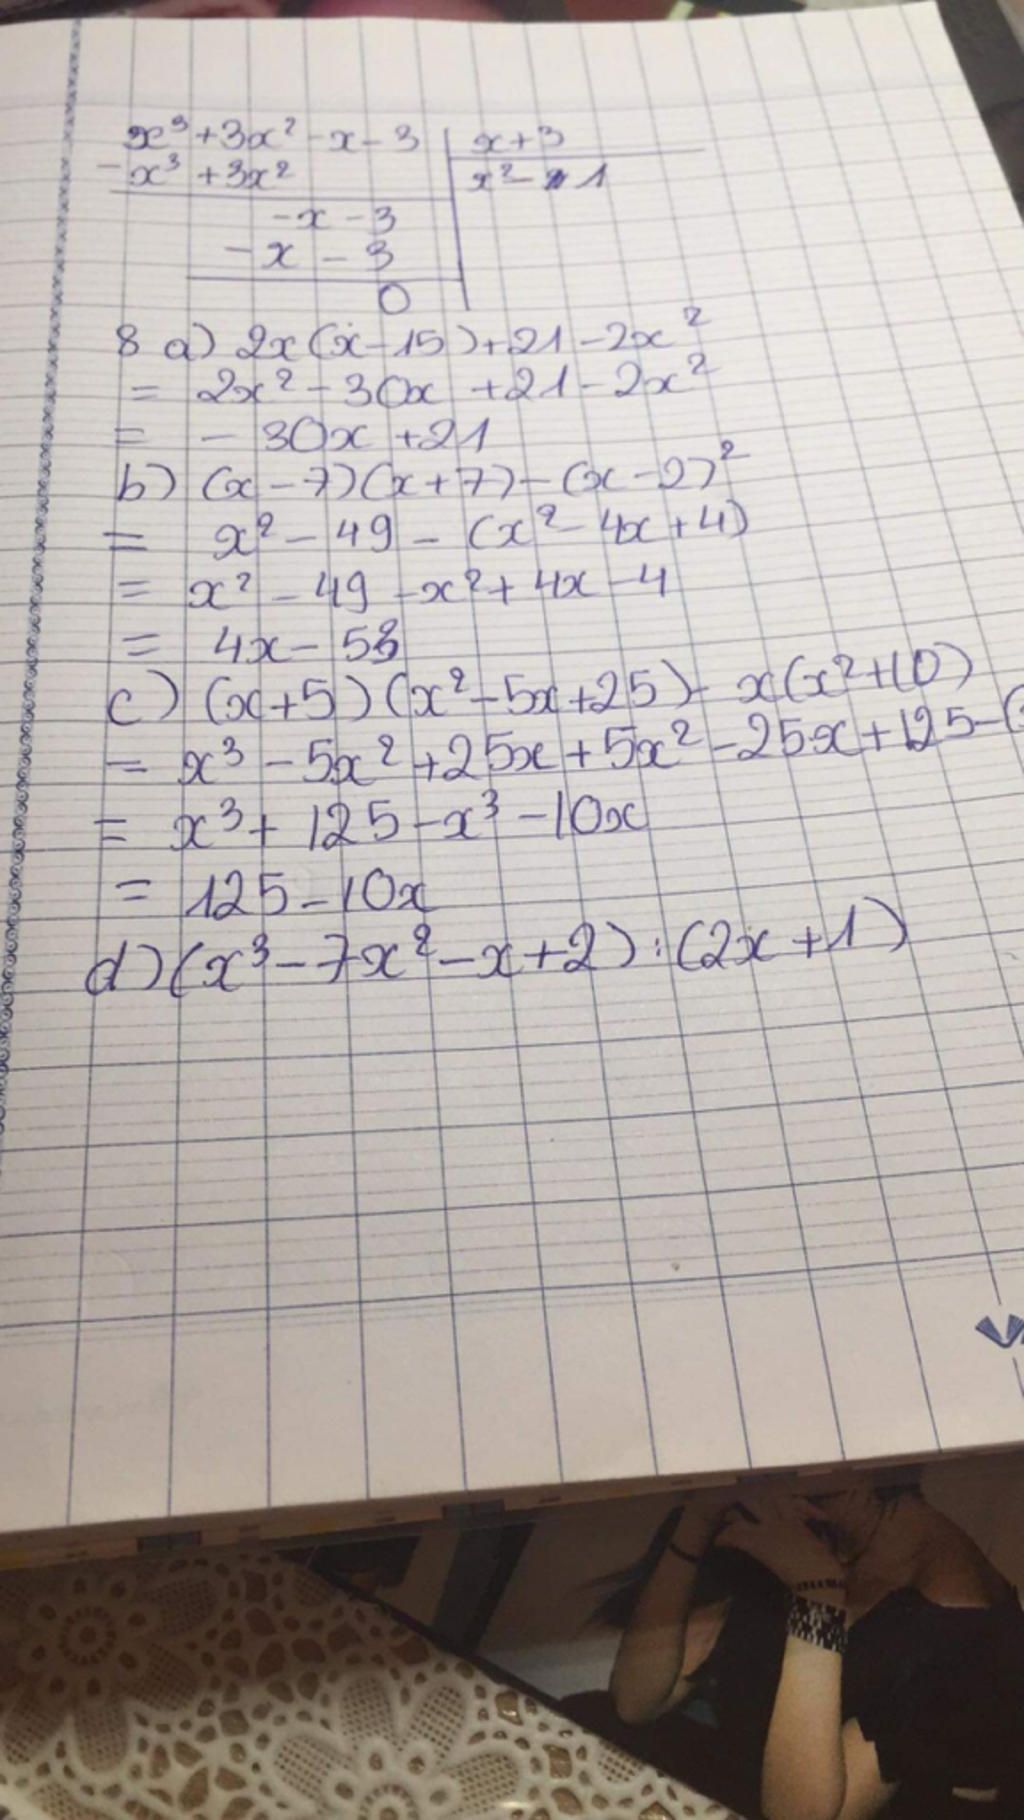 x³ + 3x² - x - 3 | x + 3
- x³ + 3x² | x² - 1
- x - 3
- x - 3
0
8 a) 2x(x - 15) + 21 - 2x²
= 2x² - 30x + 21 - 2x²
= - 30x + 21
b) (x - 7)(x + 7) - (x - 2)²
= x² - 49 - (x² - 4x + 4)
= x² - 49 - x² + 4x - 4
= 4x - 53
c) (x + 5)(x² - 5x + 25) - x(x² + 10)
= x³ - 5x² + 25x + 5x² - 25x + 125 - (
= x³ + 125 - x³ - 10x
= 125 - 10x
d) (x³ - 7x² - x + 2) : (2x + 1)